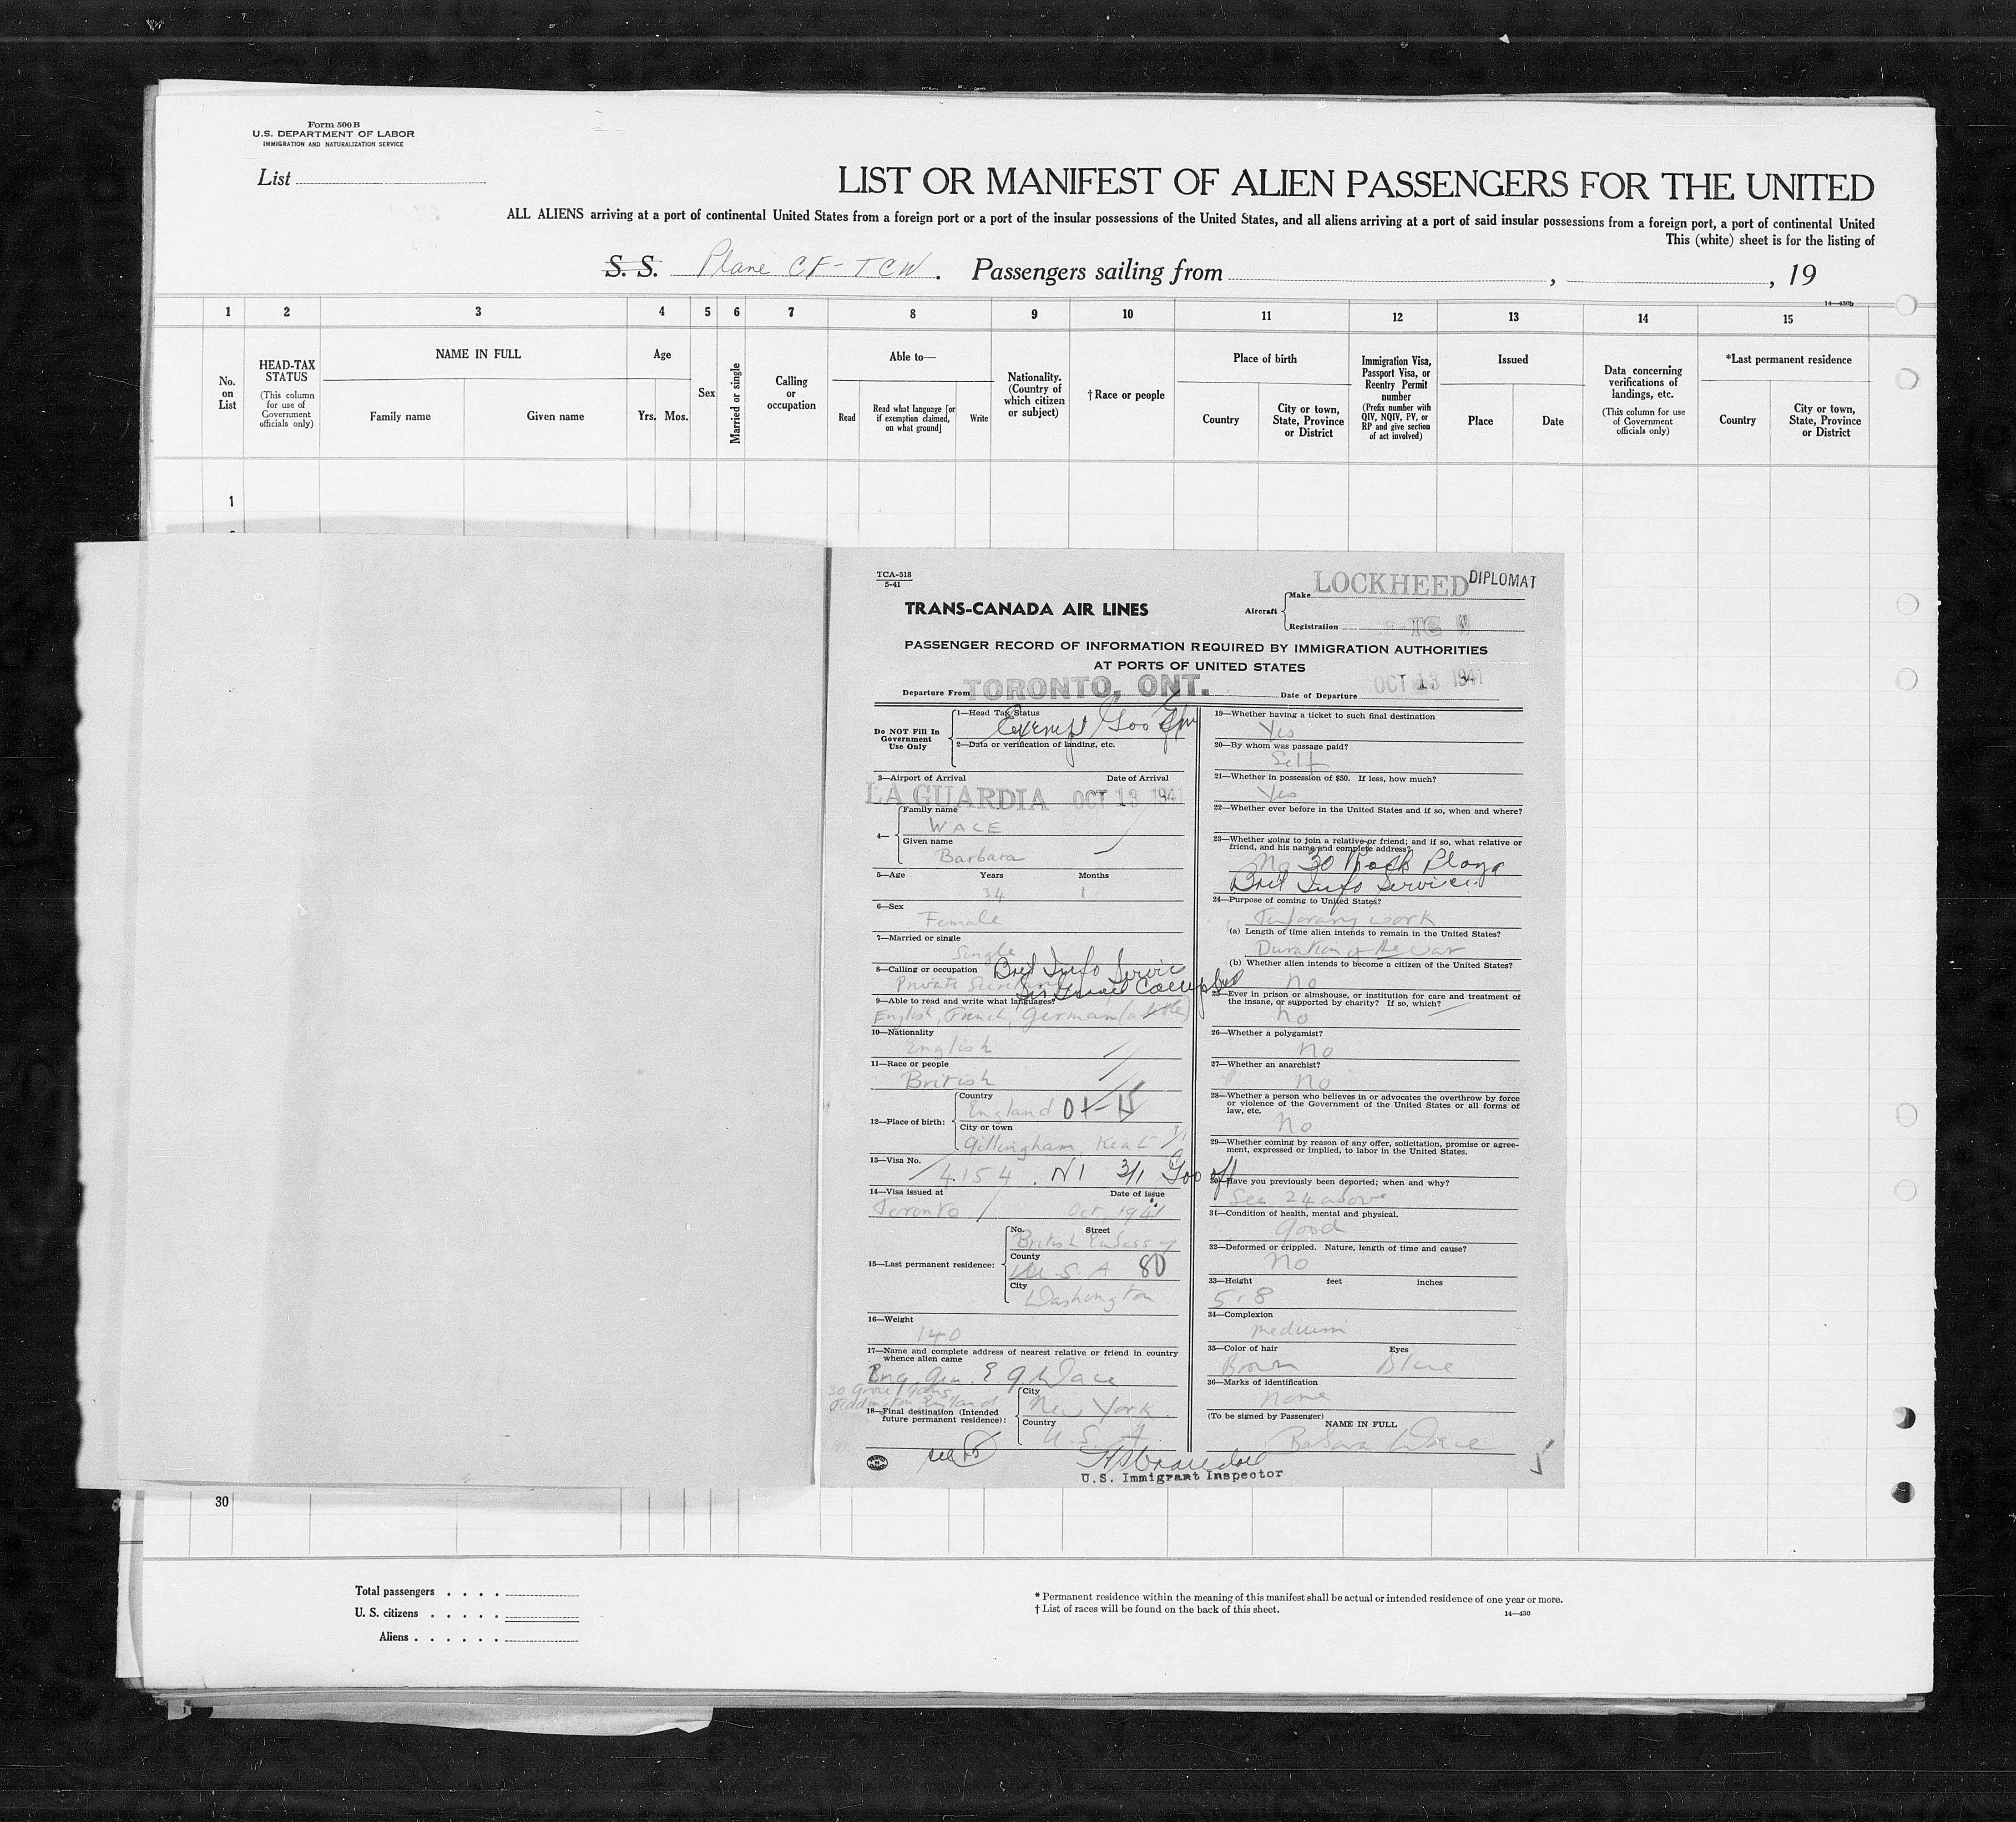 Form 500 B
U.S. DEPARTMENT OF LABOR
IMMIGRATION AND NATURALIZATION SERVICE
List
LIST OR MANIFEST OF ALIEN PASSENGERS FOR THE UNITED
ALL ALIENS arriving at a port of continental United States from a foreign port or a port of the insular possessions of the United States, and all aliens arriving at a port of said insular possessions from a foreign port, a port of continental United
This (white) sheet is for the listing of
S. S. Plane CF-TCW. Passengers sailing from , , 19
14—430b
1 2 3 4 5 6 7 8 9 10 11 12 13 14 15
No. on List
HEAD-TAX STATUS
(This column for use of Government officials only)
NAME IN FULL
Family name Given name
Age
Yrs. Mos.
Sex
Married or single
Calling or occupation
Able to—
Read
Read what language [or if exemption claimed, on what ground]
Write
Nationality. (Country of which citizen or subject)
†Race or people
Place of birth
Country
City or town, State, Province or District
Immigration Visa, Passport Visa, or Reentry Permit number
(Prefix number with QIV, NQIV, PV, or RP and give section of act involved)
Issued
Place Date
Data concerning verifications of landings, etc.
(This column for use of Government officials only)
*Last permanent residence
Country
City or town, State, Province or District
1
TCA-518
5-41
LOCKHEED DIPLOMAT
TRANS-CANADA AIR LINES
Aircraft
Make
Registration
PASSENGER RECORD OF INFORMATION REQUIRED BY IMMIGRATION AUTHORITIES
AT PORTS OF UNITED STATES
Departure From TORONTO, ONT. Date of Departure OCT 13 1941
Do NOT Fill In Government Use Only
1—Head Tax Status
Exempt
2—Data or verification of landing, etc.
3—Airport of Arrival Date of Arrival
LA GUARDIA OCT 13 1941
4—
Family name
WACE
Given name
Barbara
5—Age Years Months
34 1
6—Sex
Female
7—Married or single
Single
8—Calling or occupation Brit Info Servic
Private Secretary
9—Able to read and write what languages?
English, French, German (a little)
10—Nationality
English
11—Race or people
British
12—Place of birth:
Country
England
City or town
Gillingham, Kent
13—Visa No.
4154 . N1 3/1
14—Visa issued at Date of issue
Toronto Oct, 1941
15—Last permanent residence:
No. Street
British Embassy
County
U.S.A 80
City
Washington
16—Weight
140
17—Name and complete address of nearest relative or friend in country whence alien came
Brig. Gen. E. G. Wace
18—Final destination (Intended future permanent residence):
City
New York.
Country
U. S. A.
see 15
U.S. Immigrant Inspector
19—Whether having a ticket to such final destination
Yes
20—By whom was passage paid?
Self
21—Whether in possession of $50. If less, how much?
Yes
22—Whether ever before in the United States and if so, when and where?
23—Whether going to join a relative or friend; and if so, what relative or friend, and his name and complete address?
No 30 Rock Plaza
Brit Info Service.
24—Purpose of coming to United States?
Temporary work
(a) Length of time alien intends to remain in the United States?
Duration of the war
(b) Whether alien intends to become a citizen of the United States?
No
25—Ever in prison or almshouse, or institution for care and treatment of the insane, or supported by charity? If so, which?
no
26—Whether a polygamist?
no
27—Whether an anarchist?
no
28—Whether a person who believes in or advocates the overthrow by force or violence of the Government of the United States or all forms of law, etc.
No
29—Whether coming by reason of any offer, solicitation, promise or agreement, expressed or implied, to labor in the United States.
30—Have you previously been deported; when and why?
See 24 above
31—Condition of health, mental and physical.
good
32—Deformed or crippled. Nature, length of time and cause?
no
33—Height feet inches
5, 8
34—Complexion
medium
35—Color of hair Eyes
Brown Blue
36—Marks of identification
none
(To be signed by Passenger)
NAME IN FULL
Barbara Wace
30
Total passengers
U. S. citizens
Aliens
* Permanent residence within the meaning of this manifest shall be actual or intended residence of one year or more.
† List of races will be found on the back of this sheet.
14—430